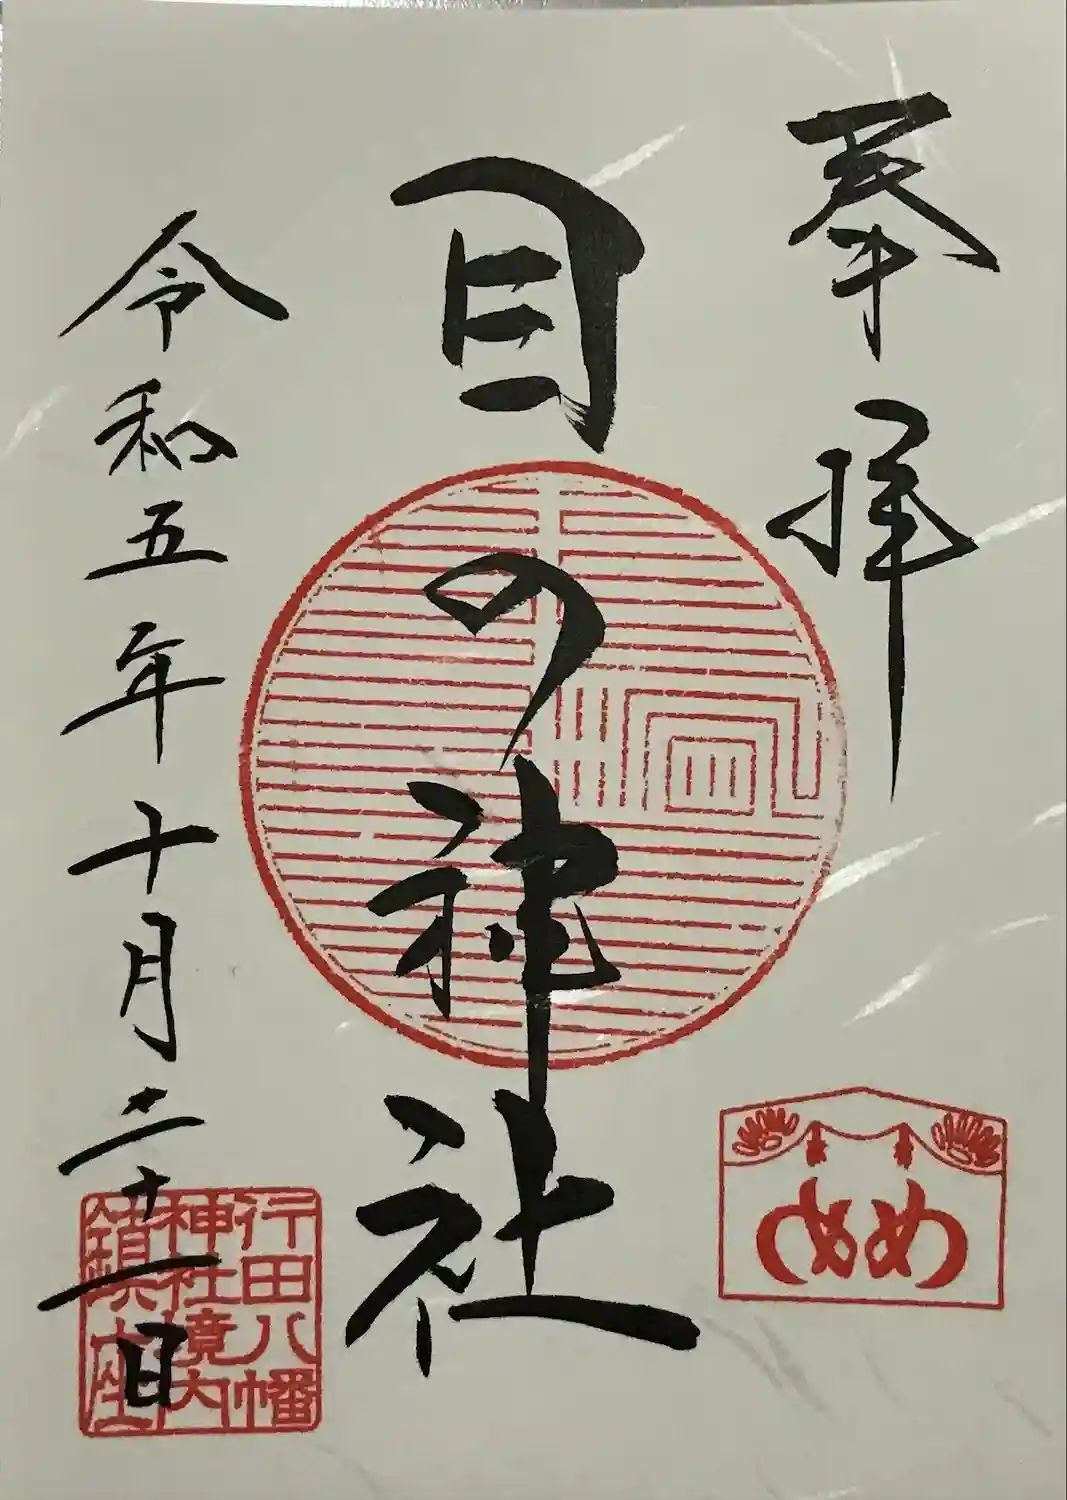 奉拝
目の神社
めめ
令和五年十月二十一日
行田八幡
神社境内
鎮座